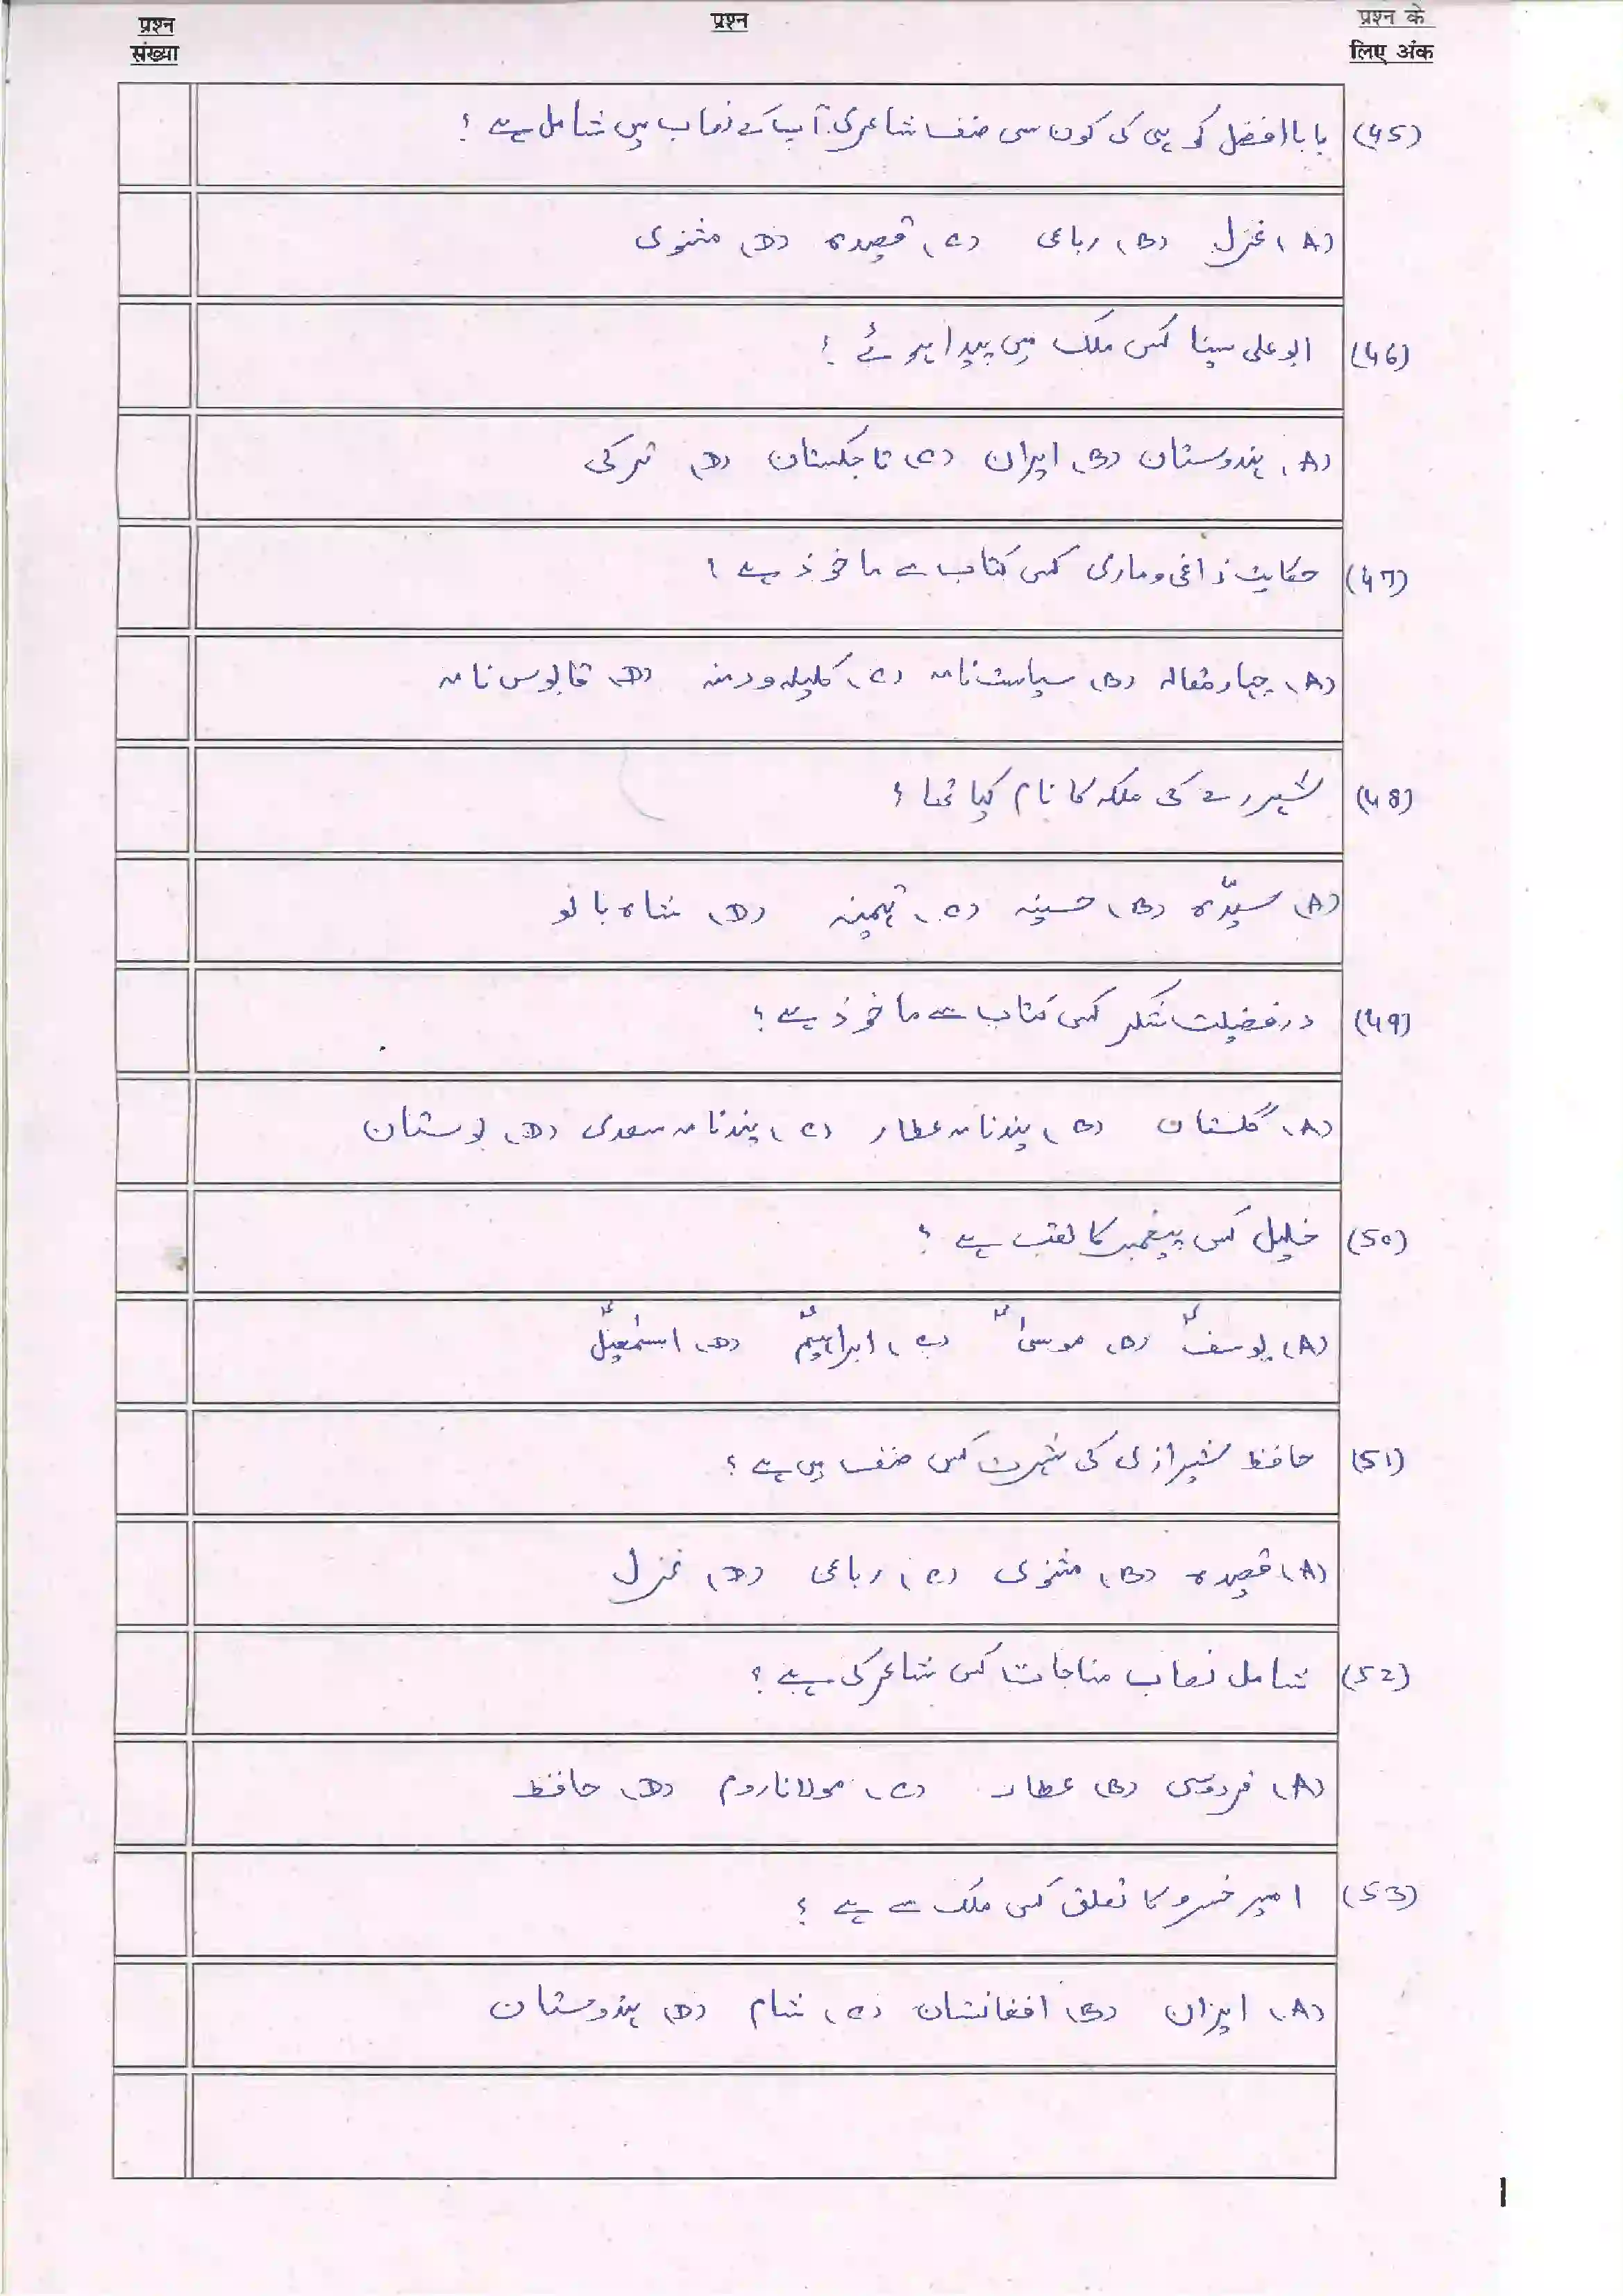 प्रश्न संख्या
प्रश्न
प्रश्न के लिए अंक
(45) بابا افضل کوہی کی کون سی صنف شاعری آپ کے نصاب میں شامل ہے ؟
(A) غزل (B) رباعی (C) قصیدہ (D) مثنوی
(46) ابو علی سینا کس ملک میں پیدا ہوئے ؟
(A) ہندوستان (B) ایران (C) تاجکستان (D) ترکی
(47) حکایت زاغی و ماری کس کتاب سے ماخوذ ہے ؟
(A) چہار مقالہ (B) سیاست نامہ (C) کلیلہ و دمنہ (D) قابوس نامہ
(48) شہر رے کی ملکہ کا نام کیا تھا ؟
(A) سیّدہ (B) حسینہ (C) تہمینہ (D) شاہ بانو
(49) در فضیلت شکر کس کتاب سے ماخوذ ہے ؟
(A) گلستان (B) پندنامہ عطار (C) پندنامہ سعدی (D) بوستان
(50) خلیل کس پیغمبر کا لقب ہے ؟
(A) یوسفؑ (B) موسیٰؑ (C) ابراہیمؑ (D) اسمٰعیلؑ
(51) حافظ شیرازی کی شہرت کس صنف میں ہے ؟
(A) قصیدہ (B) مثنوی (C) رباعی (D) غزل
(52) شامل نصاب مناجات کس شاعر کی ہے ؟
(A) فردوسی (B) عطار (C) مولانا روم (D) حافظ
(53) امیر خسرو کا تعلق کس ملک سے ہے ؟
(A) ایران (B) افغانستان (C) شام (D) ہندوستان